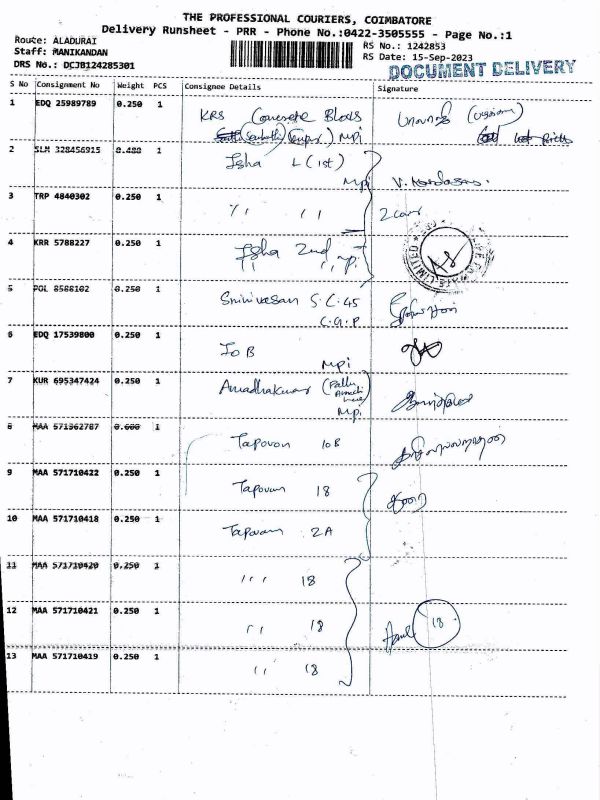 THE PROFESSIONAL COURIERS, COIMBATORE
Delivery Runsheet - PRR - Phone No.:0422-3505555 - Page No.:1
Route: ALADURAI
Staff: MANIKANDAN
DRS No.: DCJB124285301
RS No.: 1242853
RS Date: 15-Sep-2023
DOCUMENT DELIVERY
S No Consignment No Weight PCS Consignee Details Signature
1 EDQ 25989789 0.250 1 KRS Concrete Blocks
Mpi
2 SLM 328456915 0.480 1 Isha L (1st)
Mpi
3 TRP 4840302 0.250 1
4 KRR 5788227 0.250 1 Isha 2nd Mpi
5 PGL 8588102 0.250 1 Srinivasan S.C.45
C.G.P
6 EDQ 17539800 0.250 1 IOB
Mpi
7 KUR 695347424 0.250 1
Mpi
8 MAA 571362787 0.600 1 Tapovan 10B
9 MAA 571710422 0.250 1 Tapovan 18
10 MAA 571710418 0.250 1 Tapovan 2A
11 MAA 571710420 0.250 1 18
12 MAA 571710421 0.250 1 18 18
13 MAA 571710419 0.250 1 18